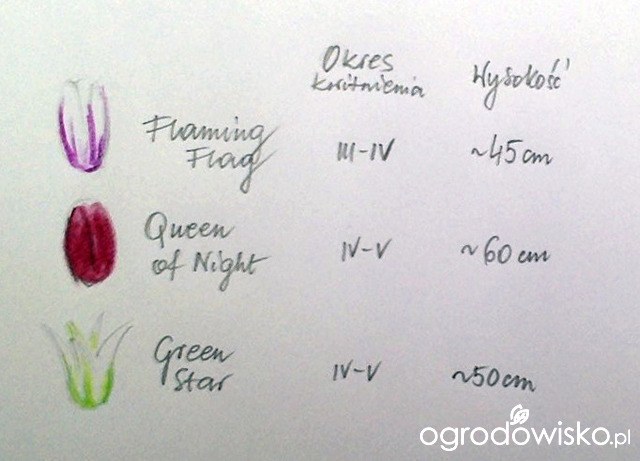 Okres
kwitnienia
Wysokość
Flaming
Flag
III-IV
~45cm
Queen
of Night
IV-V
~60cm
Green
Star
IV-V
~50cm
ogrodowisko.pl